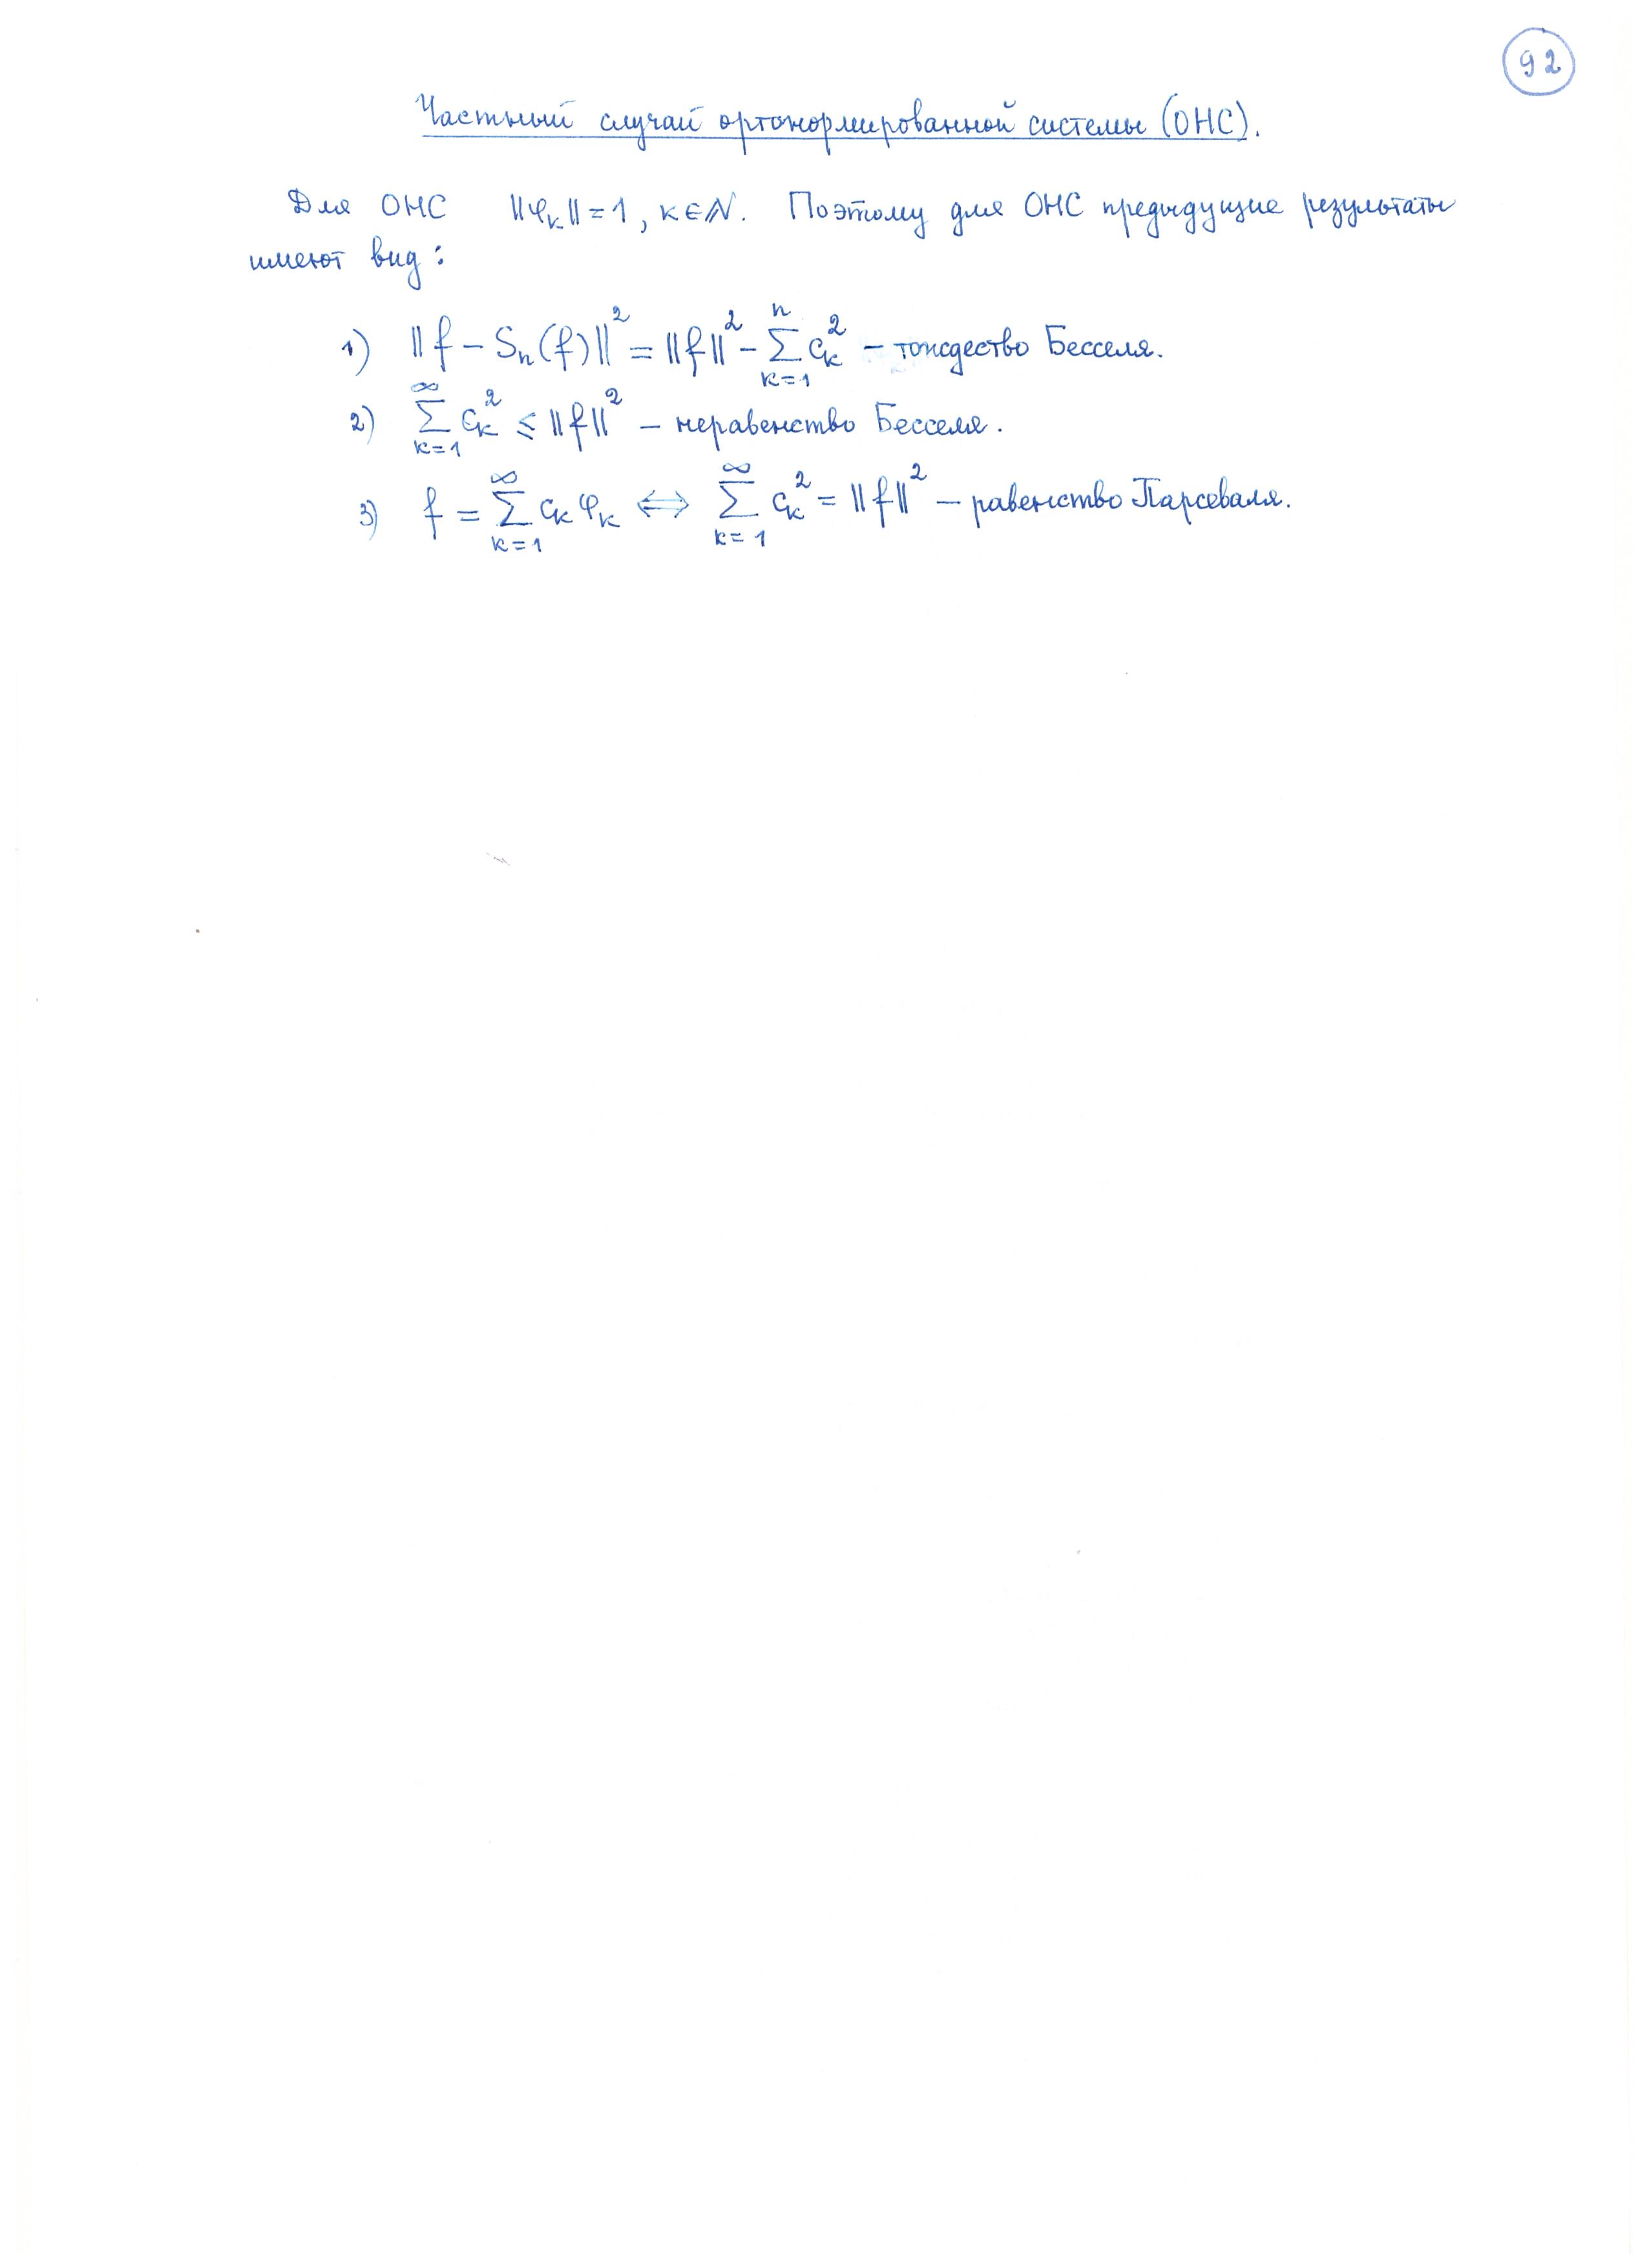 92
Частный случай ортонормированной системы (ОНС).
Для ОНС ‖φₖ‖ = 1, k∈ℕ. Поэтому для ОНС предыдущие результаты
имеют вид:
1) ‖f − Sₙ(f)‖² = ‖f‖² − ∑_{k=1}^{n} cₖ² – тождество Бесселя.
2) ∑_{k=1}^{∞} cₖ² ≤ ‖f‖² – неравенство Бесселя.
3) f = ∑_{k=1}^{∞} cₖφₖ ⟺ ∑_{k=1}^{∞} cₖ² = ‖f‖² – равенство Парсеваля.